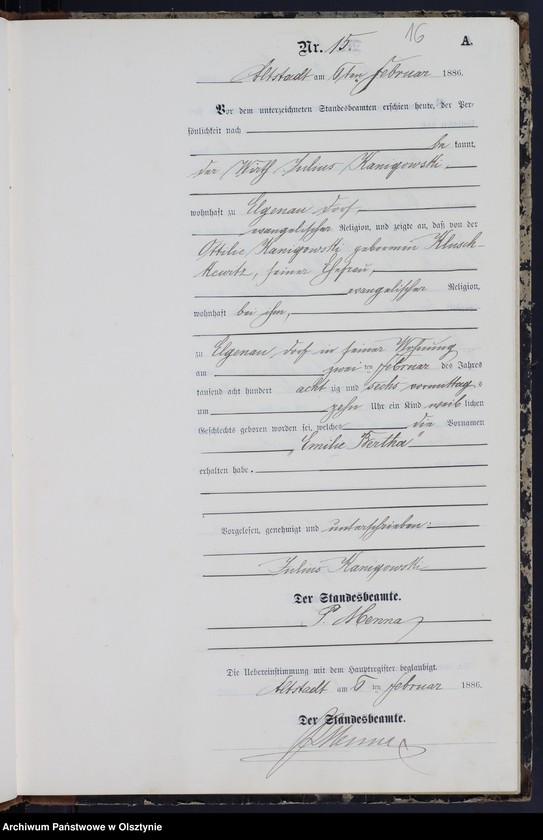 16
Nr. 15. A.
Altstadt am ten Februar 1886.
Vor dem unterzeichneten Standesbeamten erschien heute, der Per-
sönlichkeit nach
be kannt,
der Wirth Julius Kanigowski
wohnhaft zu Elgenau Dorf
evangelischer Religion, und zeigte an, daß von der
Ottilie Kanigowski geborenen Klusch-
kewitz, seiner Ehefrau,
evangelischer Religion,
wohnhaft bei ihm,
zu Elgenau, Dorf in seiner Wohnung
am zwei ten Februar des Jahres
tausend acht hundert acht zig und sechs vormittags
um zehn Uhr ein Kind weib lichen
Geschlechts geboren worden sei, welches die Vornamen
„Emilie Bertha"
erhalten habe.
Vorgelesen, genehmigt und unterschrieben:
Julius Kanigowski
Der Standesbeamte.
P. Menna
Die Uebereinstimmung mit dem Hauptregister beglaubigt.
Altstadt am ten Februar 1886.
Der Standesbeamte.
Archiwum Państwowe w Olsztynie